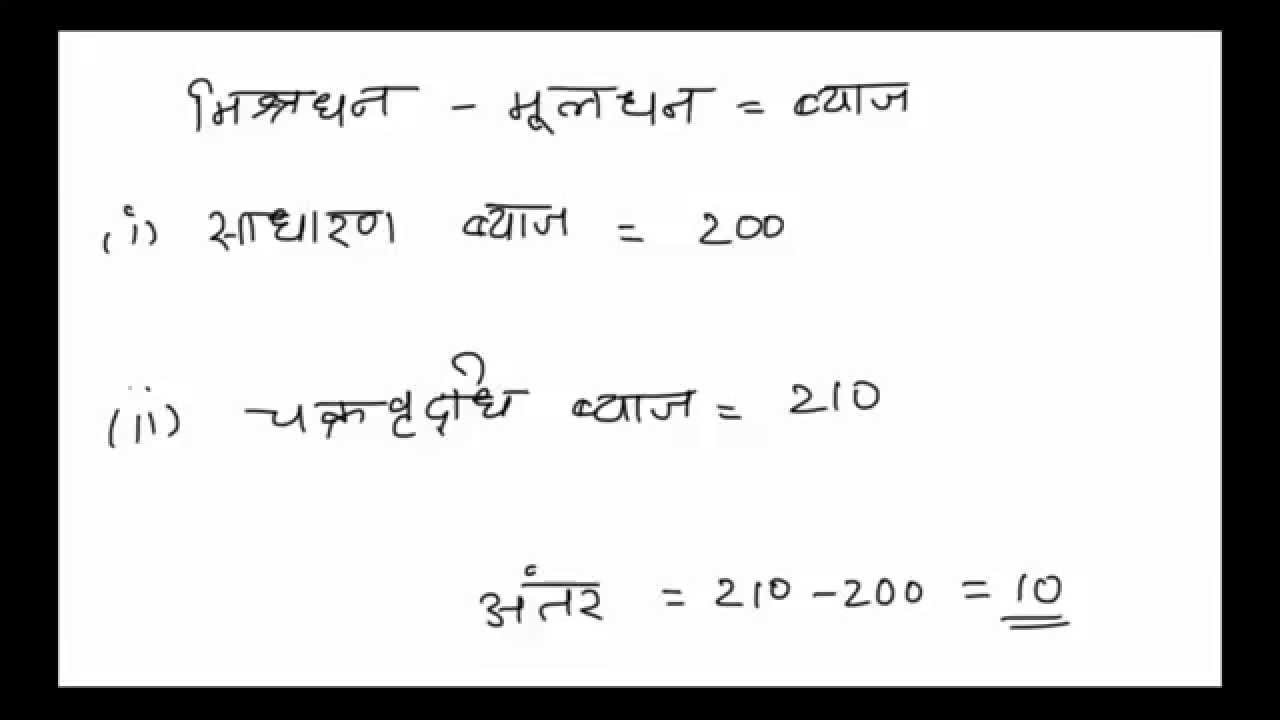 मिश्रधन - मूलधन = ब्याज
(i) साधारण ब्याज = 200
(ii) चक्रवृद्धि ब्याज = 210
अंतर = 210 - 200 = 10